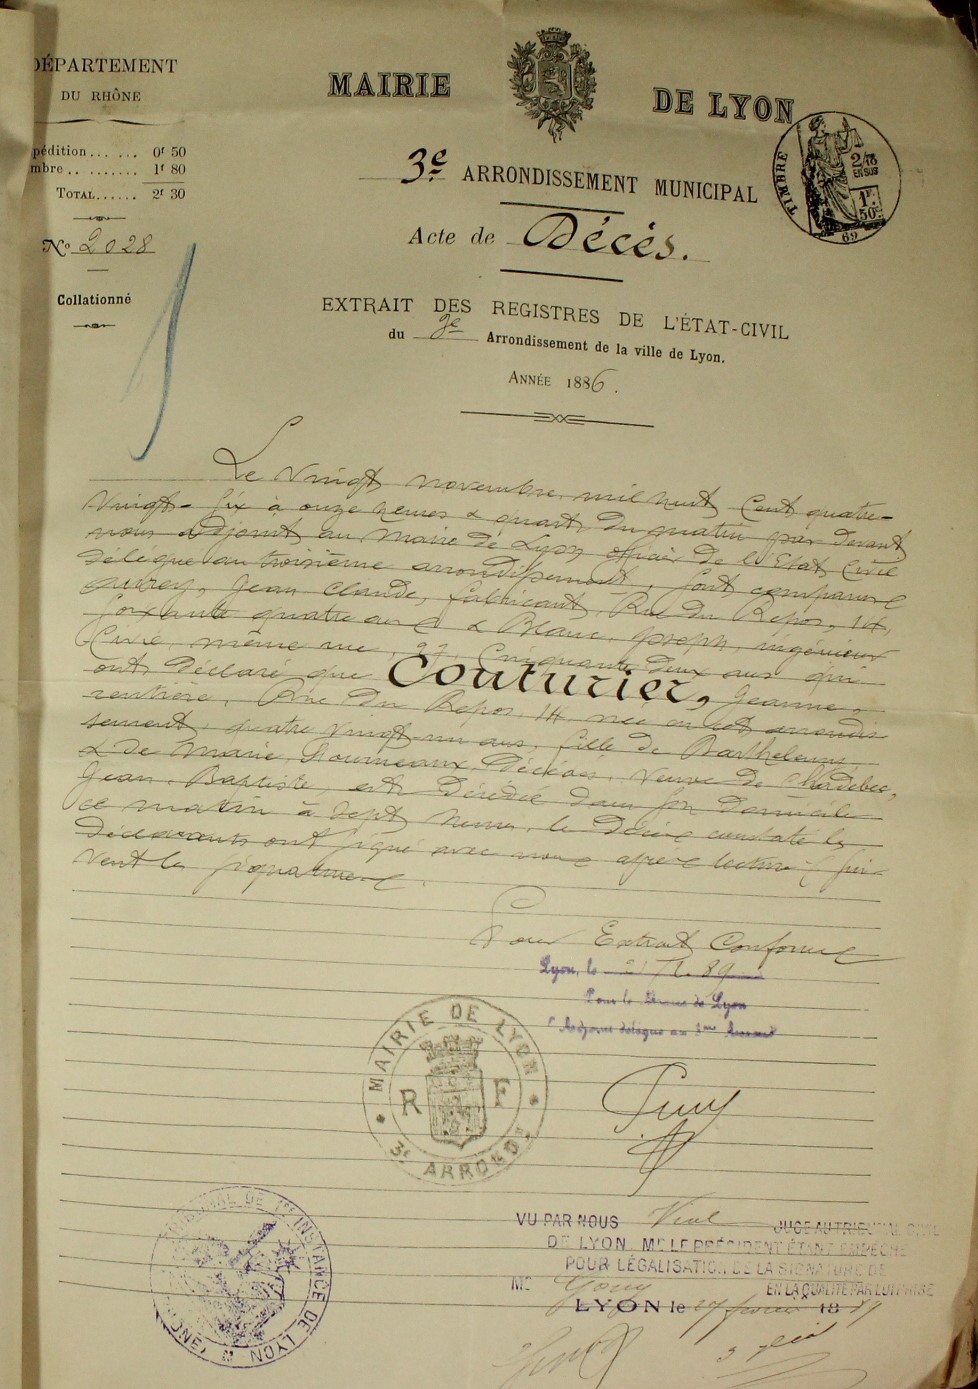 DÉPARTEMENT
DU RHÔNE
pédition...... 0f 50
mbre......... 1f 80
TOTAL...... 2f 30
No 2028
Collationné
MAIRIE DE LYON
3e ARRONDISSEMENT MUNICIPAL
TIMBRE
2/10
EN SUS
1F.
50c
69
Acte de Décès.
EXTRAIT DES REGISTRES DE L'ÉTAT-CIVIL
du 3e Arrondissement de la ville de Lyon.
ANNÉE 1886.
Le Vingt novembre mil huit Cent quatre-
Vingt-six à onze heures & quart du matin par devant
nous adjoint au Maire de Lyon officier de l'Etat Civil
délégué au troisième arrondissement, sont comparus
Jean Claude, fabricant, Rue du Repos, 14,
soixante quatre ans & Blanc, Joseph, ingénieur
Civil, même rue, Cinquante deux ans qui
ont déclaré que Couturier, Jeanne,
rentière, Rue du Repos, 14, née en cet arrondis-
sement, quatre Vingt-un ans, fille de Barthélemy,
& de Marie décédés, Veuve de
Jean-Baptiste, est décédée dans son domicile
ce matin à sept heures, le Décès constaté les
déclarants ont signé avec nous après lecture (Sui-
vent les signatures).
Pour Extrait Conforme
Lyon, le 89
Pour le Maire de Lyon
adjoint délégué au 3me
MAIRIE DE LYON
R F
3e ARRONDt
TRIBUNAL DE 1re INSTANCE DE LYON
(RHÔNE)
VU PAR NOUS Vial JUGE AU TRIBUNAL CIVIL
DE LYON Mr LE PRÉSIDENT ÉTANT EMPÊCHÉ
POUR LÉGALISATION DE LA SIGNATURE DE
Mr EN LA QUALITÉ PAR LUI PRISE
LYON le 27 février 1889